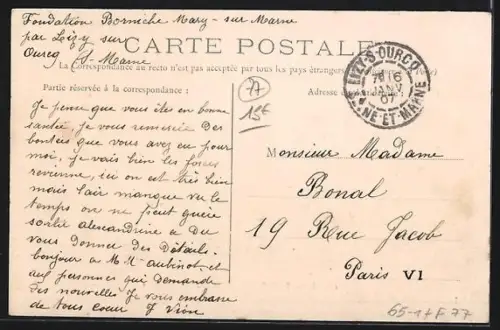 Fondation Borniche Mary-sur-Marne
par Lizy sur
Ourcq S-Marne
CARTE POSTALE
La Correspondance au recto n'est pas acceptée par tous les pays étrangers
Partie réservée à la correspondance :
Adresse
LIZY-S-OURCQ
16
JANV
07
NE ET MARNE
77
15€
Je pense que vous êtes en bonne
santée, je vous remercie des
bontées que vous avez eu pour
moi, je vais bien les forces
revienne, ici on est très bien
mais l'air manque vu le
temps on ne peut guère
sortir alexandrine a du
vous donner des Détails.
bonjour a M Mme Aubinot, et
aux personnes qui demande
des nouvelles Je vous embrasse
de tous coeur J
Monsieur Madame
Bonal
19 Rue Jacob
Paris VI
65-1+F77